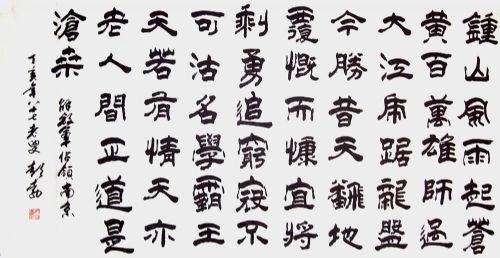 鍾山風雨起蒼
黄百萬雄師過
大江虎踞龍盤
今勝昔天飜地
覆慨而慷宜將
剩勇追窮寇不
可沽名學霸王
天若有情天亦
老人間正道是
滄桑
解放軍佔領南京
丁亥年八十七老叟